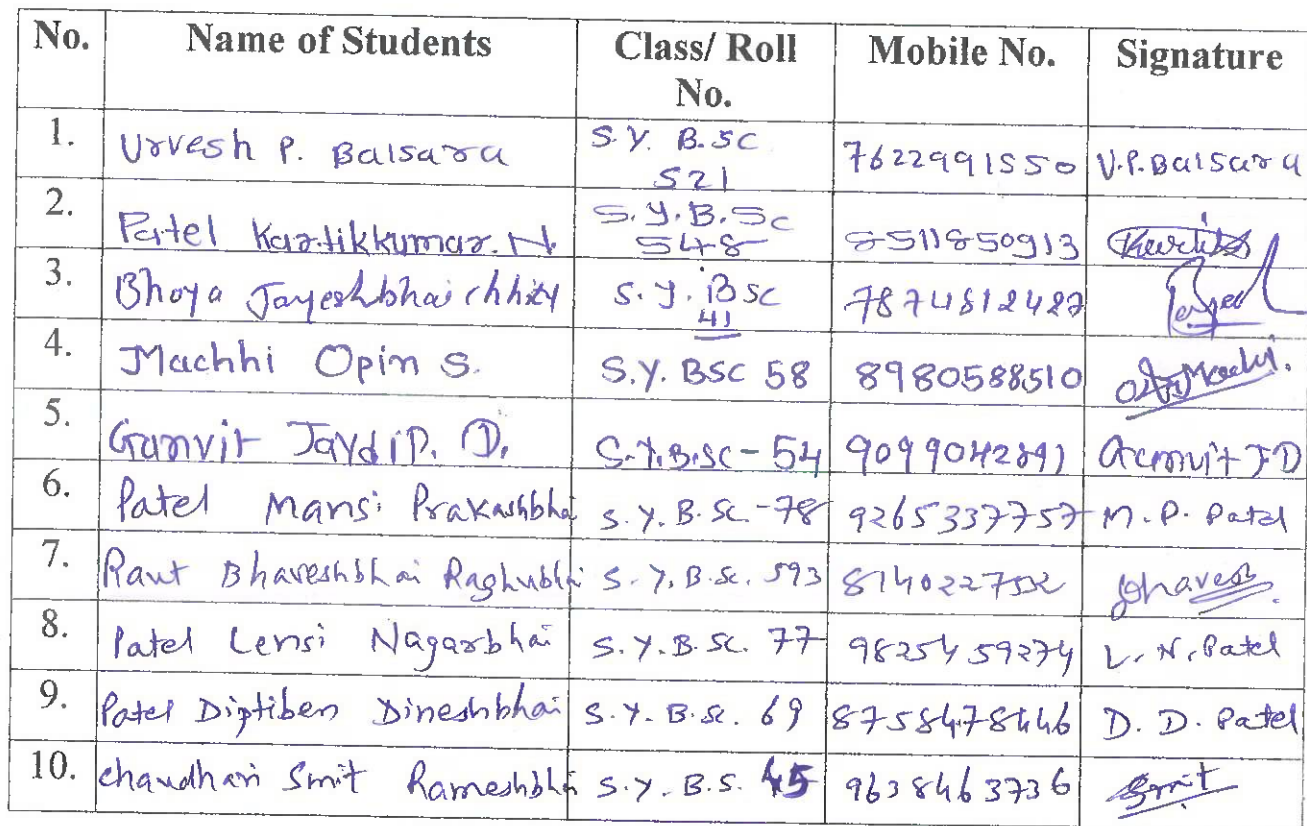 No. Name of Students Class/ Roll No. Mobile No. Signature
1. Urvesh P. Balsara S.Y. B.SC 521 7622991550 U.P.Balsara
2. Patel Kartikkumar. N. S.Y.B.Sc 548 8511850913
3. Bhoya Jayeshbhai chhity S.Y. BSC 41 7874812427
4. Machhi Opin S. S.Y. BSC 58 8980588510
5. Gamvit Jaydip. D. S.Y.B.SC - 54 9099042891 Gamvit J.D
6. Patel Mansi Prakashbhai S.Y.B.Sc. - 78 9265337757 M.P. Patel
7. Raut Bhaveshbhai Raghubhai S.Y.B.Sc. 593 Bhavesh
8. Patel Lensi Nagarbhai S.Y.B.Sc. 77 9825459274 L.N. Patel
9. Patel Diptiben Dineshbhai S.Y.B.Sc. 69 8758478446 D.D. Patel
10. Chaudhari Smit Rameshbhai S.Y.B.S. 45 9638463736 Smit